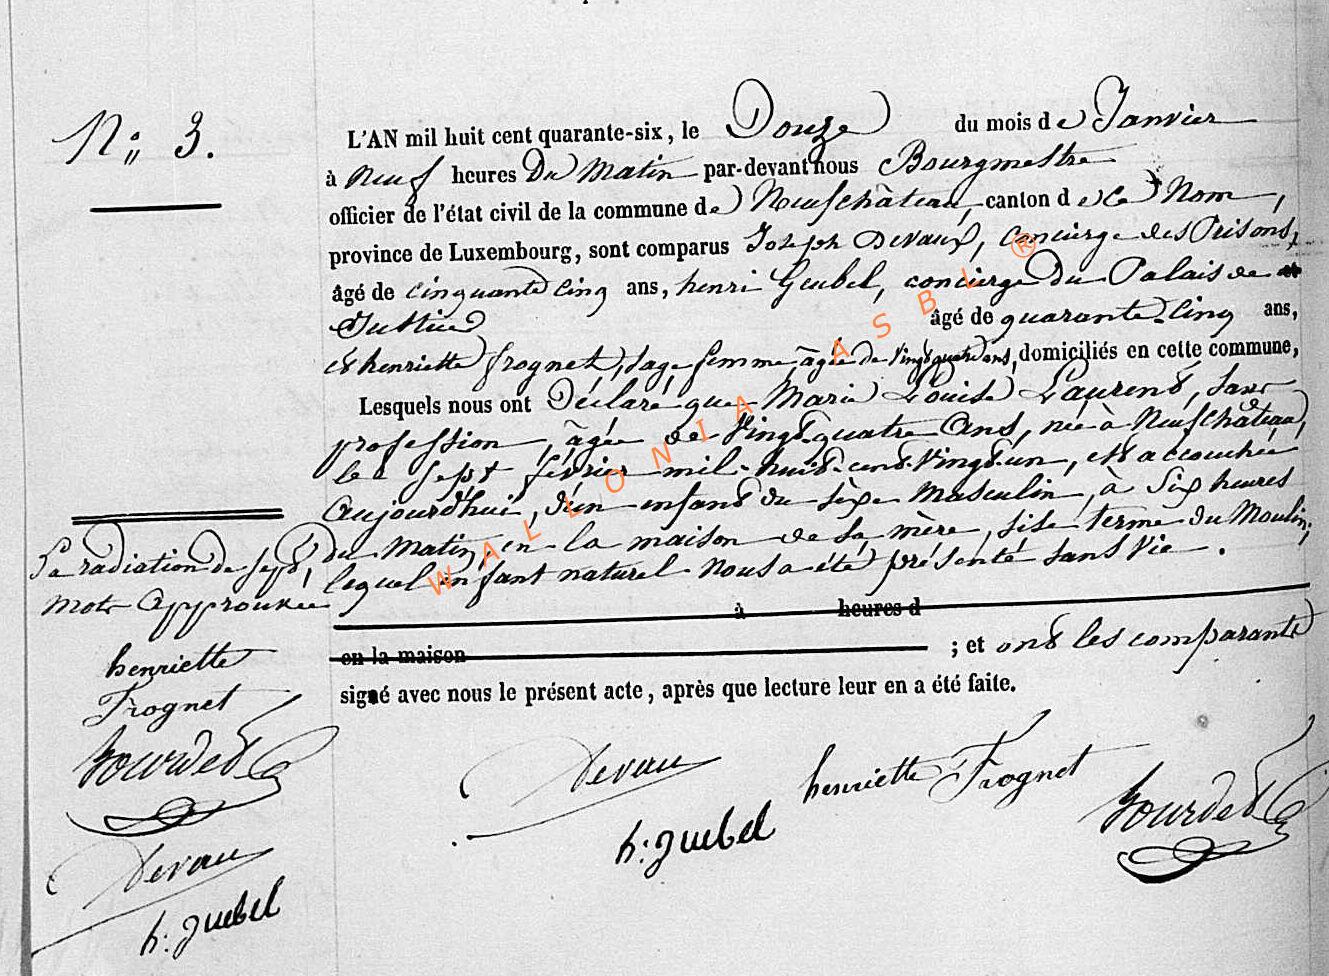 N° 3.
L'AN mil huit cent quarante-six, le Douze du mois de Janvier
à Neuf heures Du Matin par-devant nous Bourgmestre
officier de l'état civil de la commune de Neufchâteau, canton de ce Nom,
province de Luxembourg, sont comparus Joseph Devaux, concierge des Prisons,
âgé de cinquante cinq ans, henri Guebel, concierge du Palais de
Justice âgé de quarante-cinq ans,
et henriette frognet, sage femme, âgée de vingt quatre ans, domiciliés en cette commune,
Lesquels nous ont Déclaré que Marie Louise Laurent, sans
profession, âgée de vingt-quatre ans, née à Neufchâteau,
le sept février mil-huit-cent-vingt-un, est accouchée
aujourd'hui, d'un enfant du sèxe Masculin, à six heures
du Matin, en la maison de sa mère, sise terme du Moulin,
lequel enfant naturel nous a été présenté sans vie.
à heures d
en la maison ; et ont les comparants
signé avec nous le présent acte, après que lecture leur en a été faite.
La radiation de sept,
mots approuvée
henriette
Frognet
Bourdet
Devau
h: guebel
Devau
henriette Frognet
Bourdet
h: guebel
WALLONIA ASBL ®